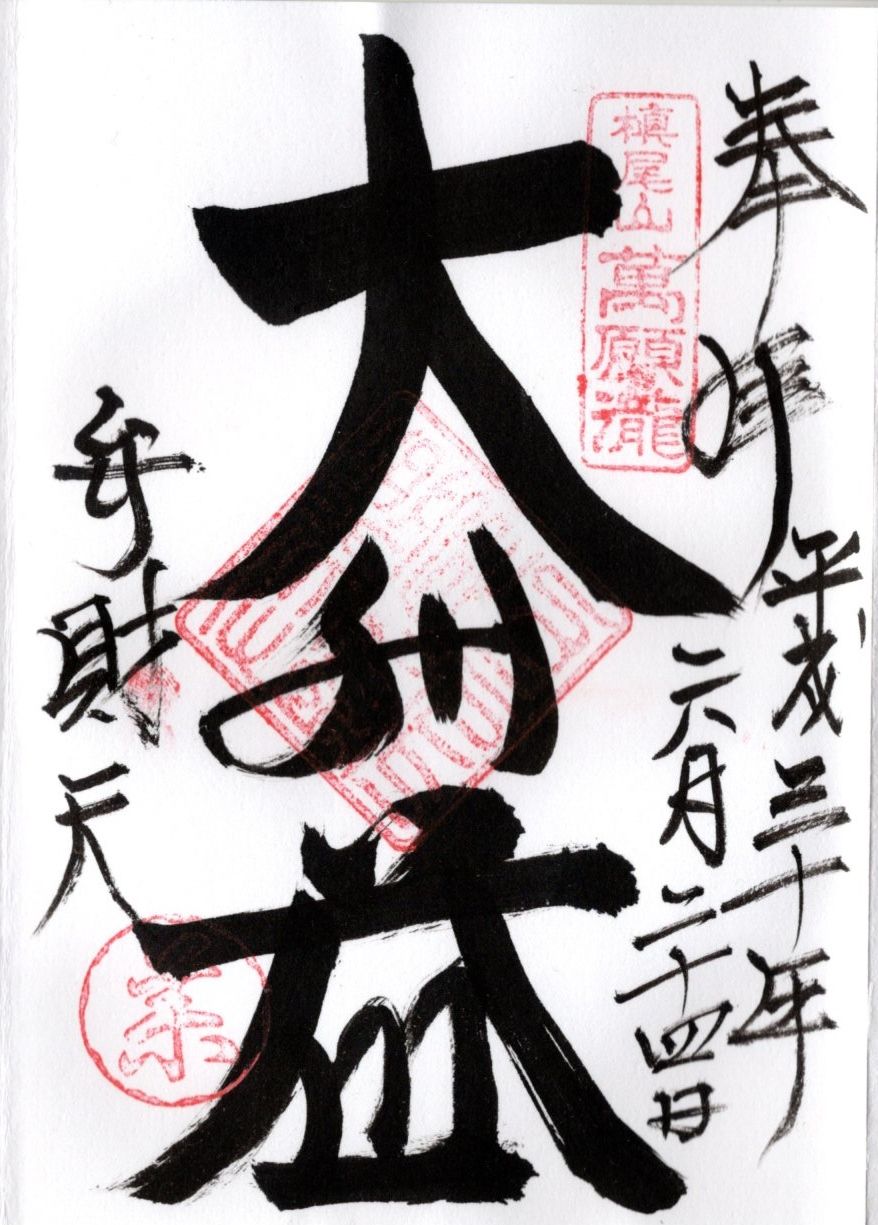 奉拝
平成三十年
六月二十四日
槇尾山萬願瀧
大利益
弁財天